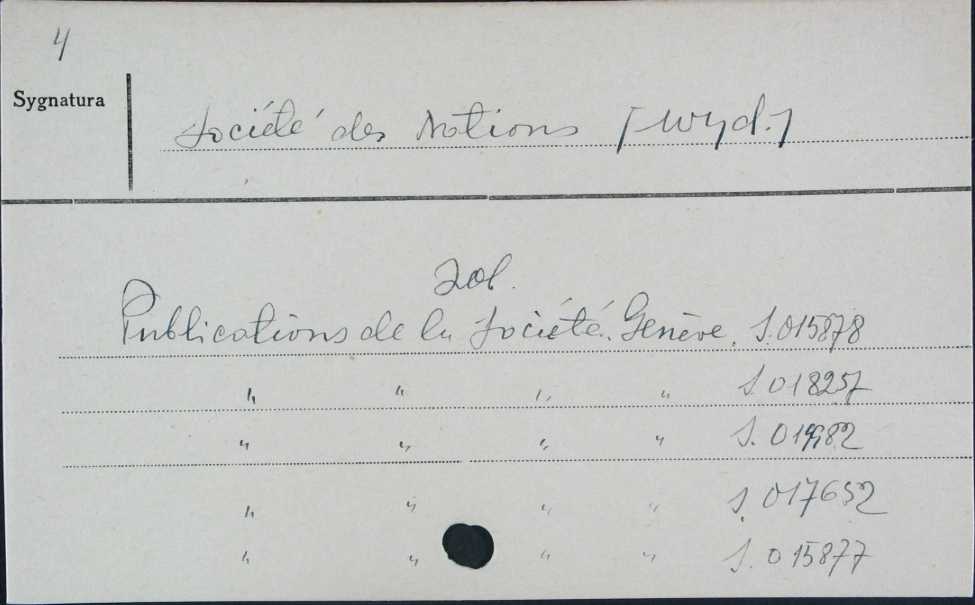 4
Sygnatura
Société des Nations [wyd.]
Zob.
Publications de la Société. Genève. S.015878
" " " " S.018257
" " " " S.
" " " " S.017652
" " " " S.015877